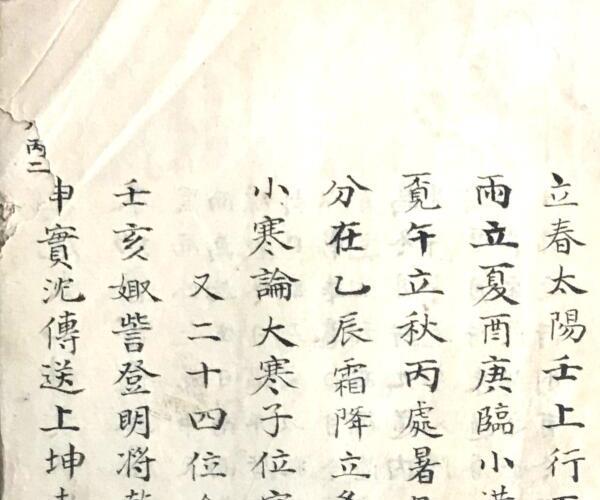 立春太陽壬上行
雨立夏酉庚臨小滿
覓午立秋丙處暑
分在乙辰霜降立冬
小寒論大寒子位
又二十四位
壬亥娵訾登明將乾
申實沈傳送上坤
丙二